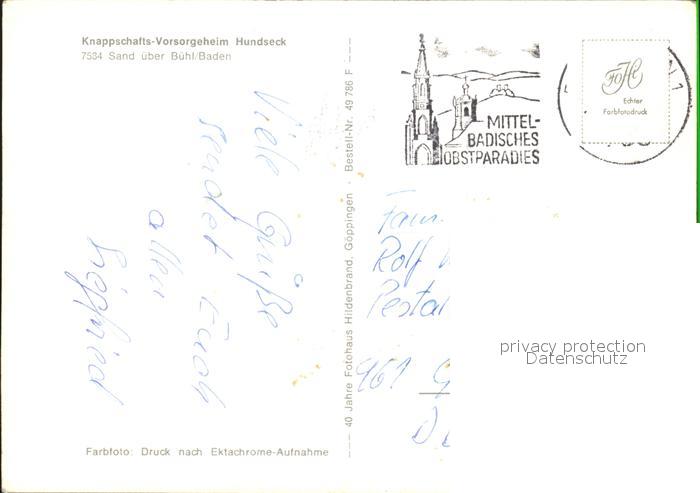 Knappschafts-Vorsorgeheim Hundseck
7584 Sand über Bühl/Baden
Viele Grüße
sendet Euch
allen
Farbfoto: Druck nach Ektachrome-Aufnahme
40 Jahre Fotohaus Hildenbrand, Göppingen · Bestell-Nr. 49 786 F
MITTEL-
BADISCHES
OBSTPARADIES
FoHi
Echter
Farbfotodruck
Fam.
Rolf
Pestal
961 G
privacy protection
Datenschutz